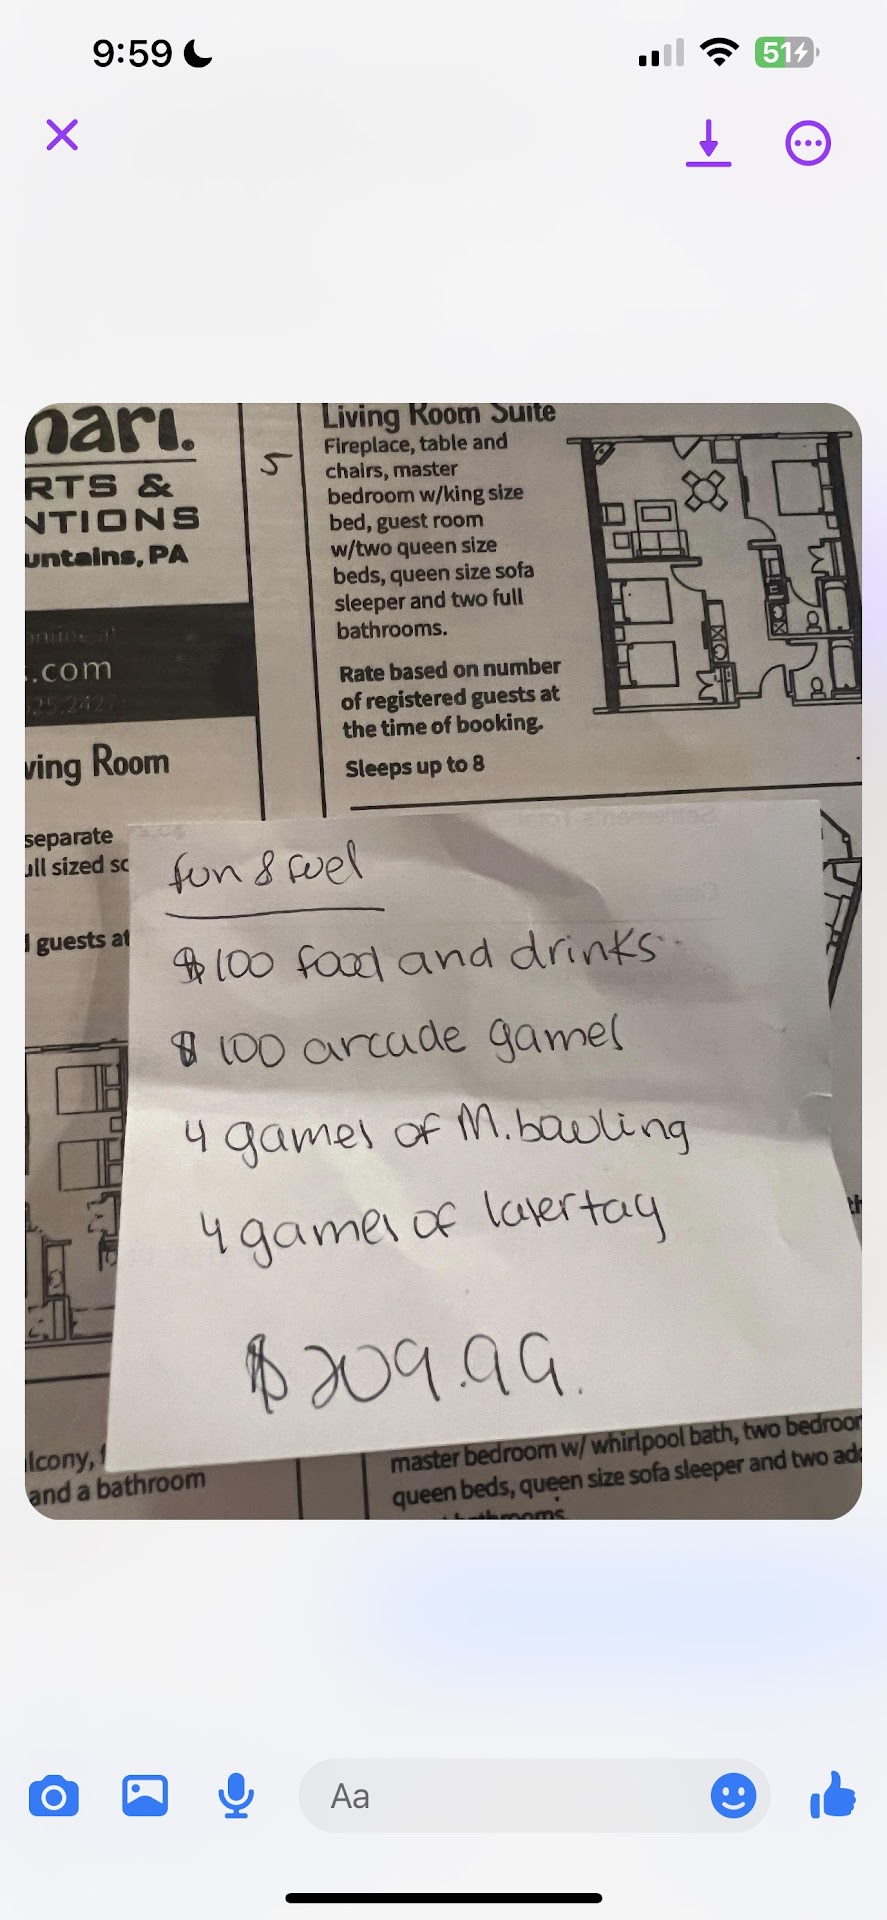 9:59
51
nari.
RTS &
NTIONS
untains, PA
.com
ving Room
separate
ull sized sc
guests at
5
Living Room Suite
Fireplace, table and
chairs, master
bedroom w/king size
bed, guest room
w/two queen size
beds, queen size sofa
sleeper and two full
bathrooms.
Rate based on number
of registered guests at
the time of booking.
Sleeps up to 8
fun & fuel
$100 food and drinks
$100 arcade games
4 games of M. bowling
4 games of lasertag
$209.99.
lcony,
and a bathroom
master bedroom w/ whirlpool bath, two bedroor
queen beds, queen size sofa sleeper and two ad
Aa